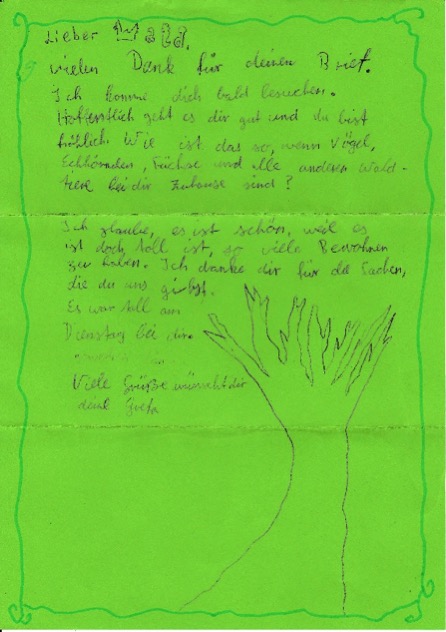 Lieber Wald,
vielen Dank für deinen Brief.
Ich komme dich bald besuchen.
Hoffentlich geht es dir gut und du bist
fröhlich. Wie ist das so, wenn Vögel,
Eichhörnchen, Füchse und alle anderen Wald-
tiere bei dir Zuhause sind?
Ich glaube, es ist schön, weil es
ist doch toll ist, so viele Bewohner
zu haben. Ich danke dir für die Sachen,
die du uns gibst.
Es war toll am
Dienstag bei dir.
Viele Grüße wünscht dir
deine Greta